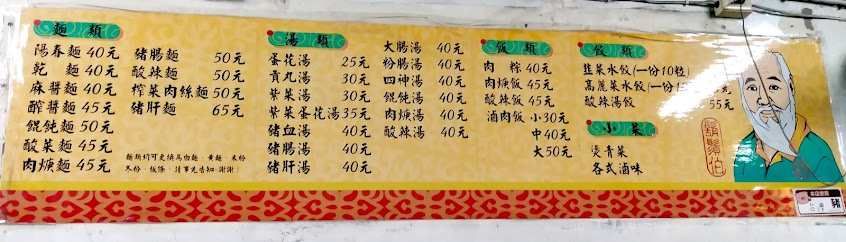 麵類
陽春麵 40元
乾麵 40元
麻醬麵 40元
醡醬麵 45元
餛飩麵 50元
酸菜麵 45元
肉焿麵 45元
豬腸麵 50元
酸辣麵 50元
榨菜肉絲麵 50元
豬肝麵 65元
麵類均可更換烏龍麵、黃麵、米粉
冬粉、板條、請事先告知,謝謝!
湯類
蛋花湯 25元
貢丸湯 30元
紫菜湯 30元
紫菜蛋花湯 35元
豬血湯 40元
豬腸湯 40元
豬肝湯 40元
大腸湯 40元
粉腸湯 40元
四神湯 40元
餛飩湯 40元
肉焿湯 40元
酸辣湯 40元
飯類
肉粽 40元
肉焿飯 45元
酸辣飯 45元
滷肉飯 小30元
中40元
大50元
餃類
韮菜水餃(一份10粒)
高麗菜水餃(一份
酸辣湯餃 55元
小菜
燙青菜
各式滷味
鬍鬚伯
豬